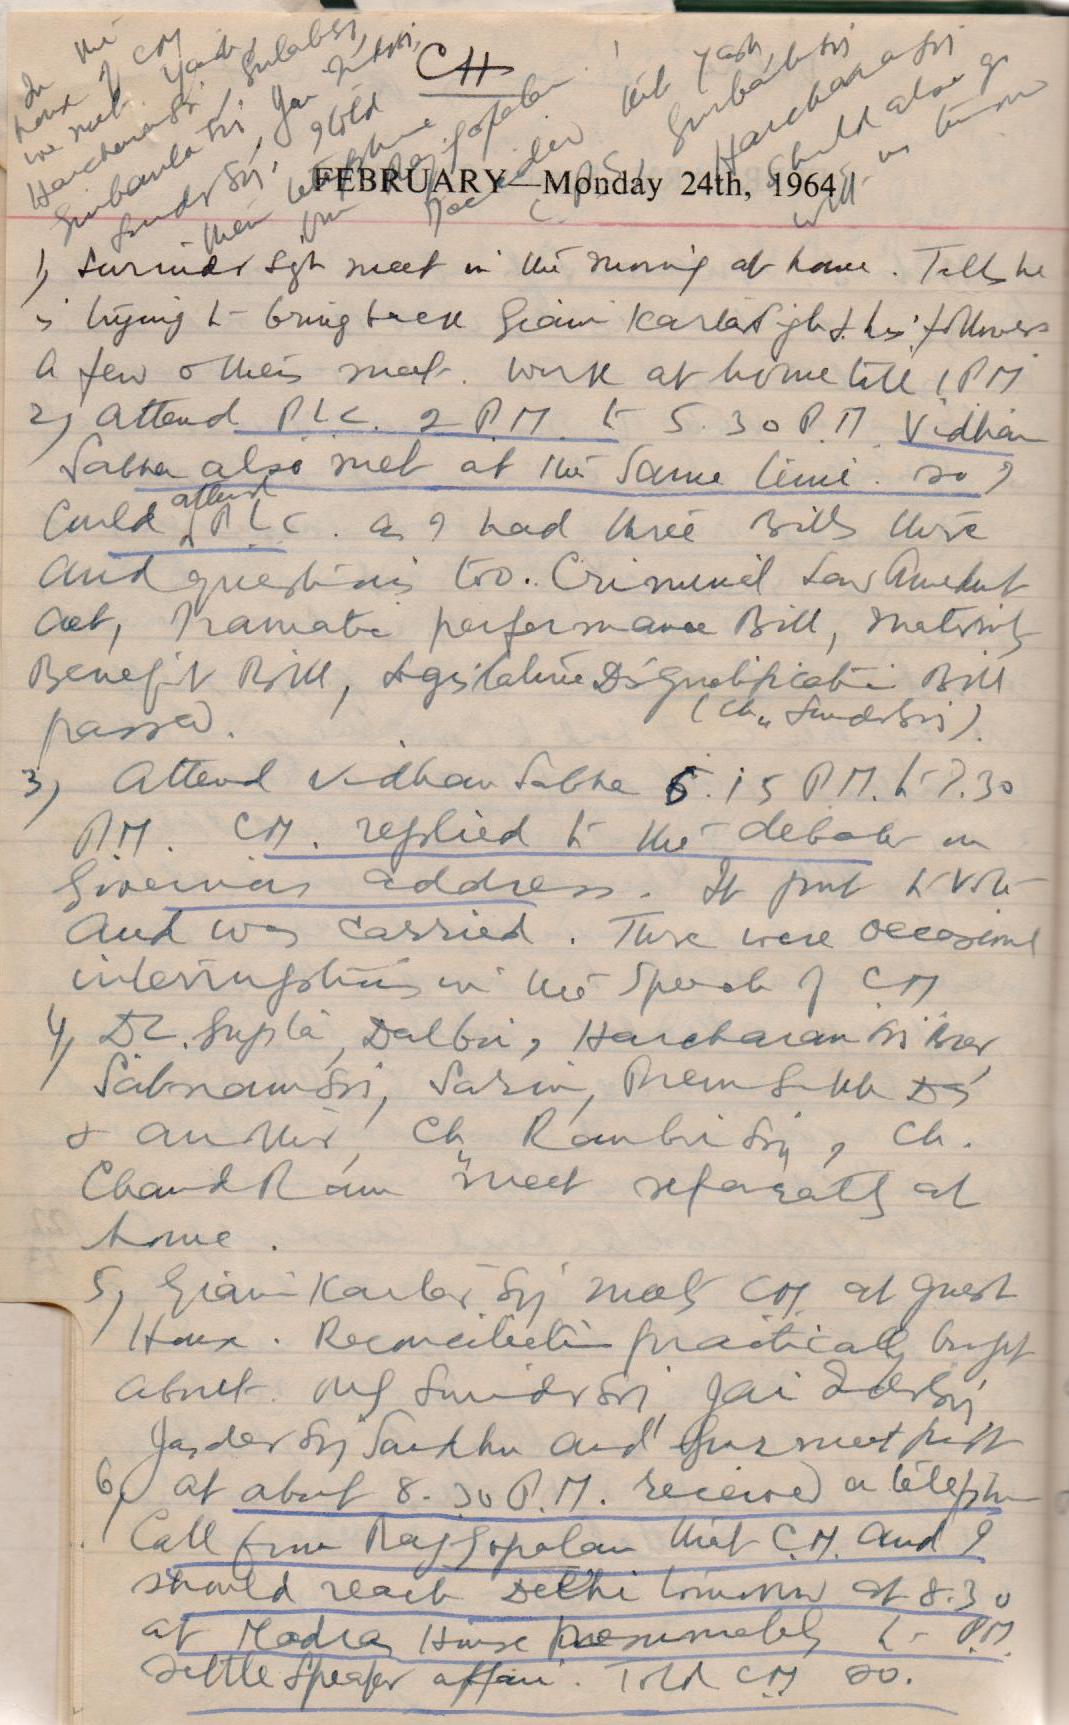 In the
house of CM
we met. Yash,
Harcharan Si, Gulab Si,
Gurbanta Si, Jai Inder Si,
Surinder Sij, I told
them telephone
from Raj Gopalan
Decided
that Yash
Gurbanta Si
Harcharan Si
should also go
with us
CH
FEBRUARY—Monday 24th, 1964
1) Surinder Sgh meet in the morning at house. Tells he
is trying to bring back Giani Kartar Sigh & his followers
A few others meet. Work at home till 1 PM
2) Attend P.L.C. 2 P.M. to 5.30 P.M. Vidhan
Sabha also met at the same time. so I
attend
Could P.L.C. as I had three Bills there
and questions too. Criminal Law Amendment
Act, Dramatic performance Bill, Maternity
Benefit Bill, Legislative Disqualification Bill
passed. (Ch. Sunder Si).
3) Attend Vidhan Sabha 6.15 P.M. to 7.30
P.M. CM. replied to the debate on
Governor's address. It put to vote
and was carried. There were occasional
interruptions in the speech of CM
4) Dr. Gupta, Dalbir, Harcharan Si Brar,
Satnam Si, Sarin, Prem Sukh Das
& another, Ch. Ranbir Sij, Ch.
Chand Ram meet separately at
home.
5) Giani Kartar Sij meets CM at guest
House. Reconciliation practically brought
about. Surinder Si, Jai Inder Sij
Jasdev Sij Sandhu and Gurmeet
6) At about 8.30 P.M. received a telephone
Call from Raj Gopalan that C.M. and I
should reach Delhi tomorrow at 8.30
at Madras House presumably to P.M.
settle Speaker affair. Told CM so.